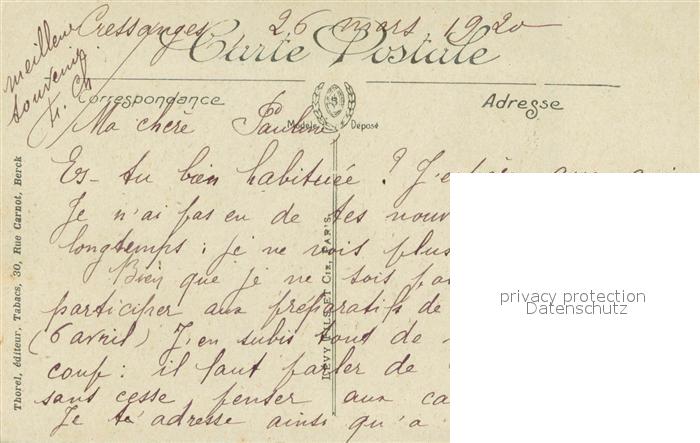 Cressanges, 26 mars 1920
meilleur
souvenir
Carte Postale
Correspondance
Adresse
Modèle Déposé
Ma chère Pauline
Es-tu bien habituée ? J'espère que oui
Je n'ai pas eu de tes nouv
longtemps ; je ne vois plus
Bien que je ne sois pas
participer aux préparatifs de
(6 avril) J'en subis tout de
coup : il faut parler de
sans cesse penser aux ca
Je te adresse ainsi qu'a
Thorel, éditeur, Tabacs, 30, Rue Carnot, Berck
LÉVY FILS ET CIE, PARIS
privacy protection
Datenschutz